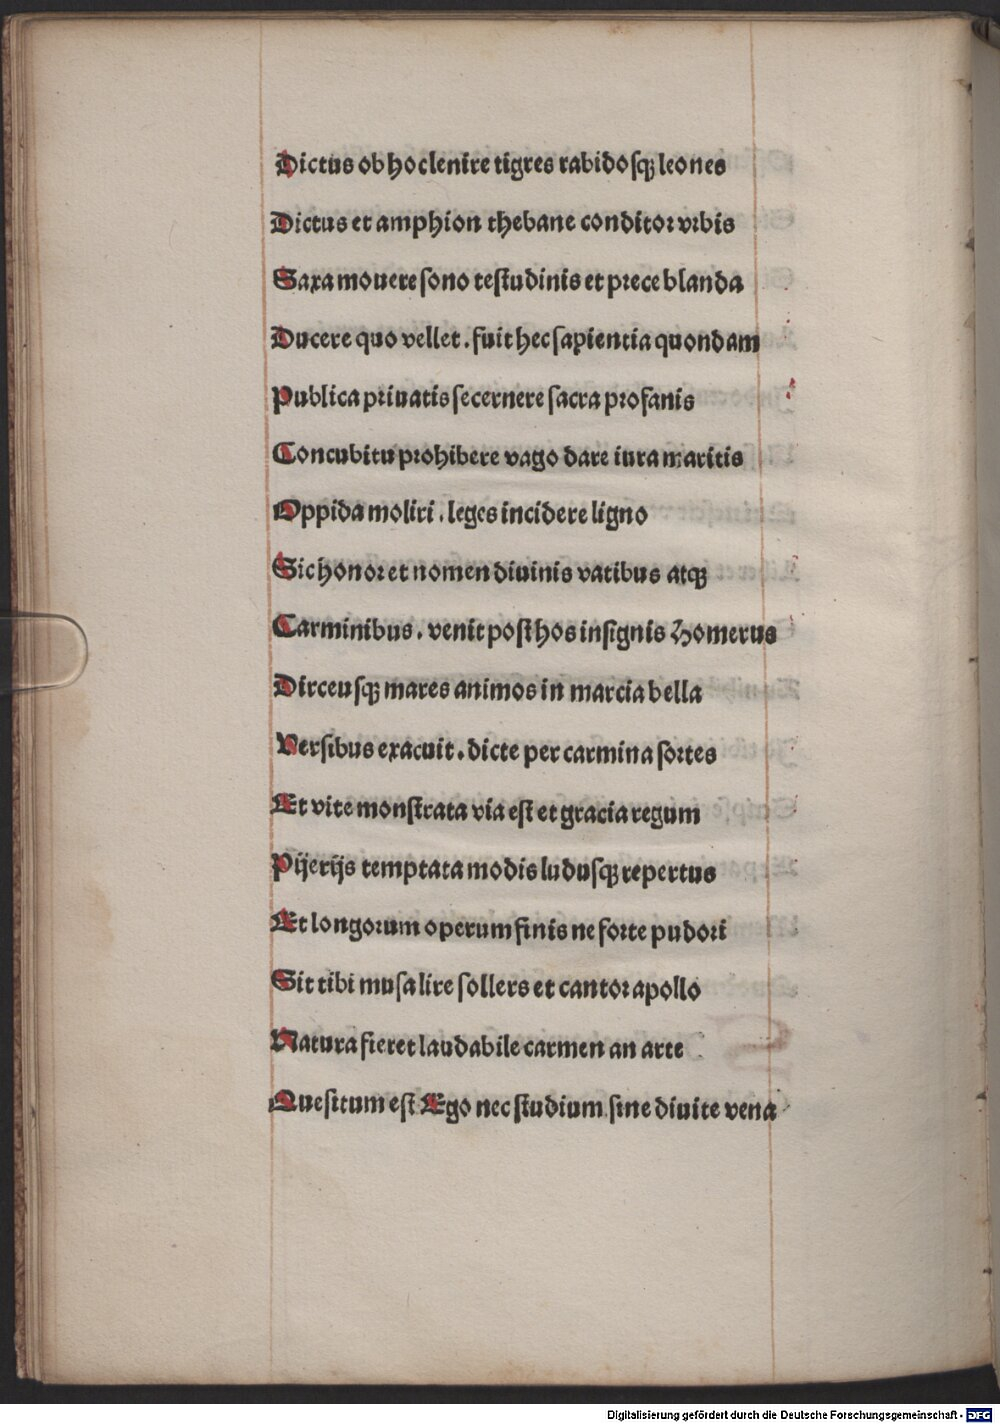 Dictus ob hoc lenire tigres rabidosqꝫ leones
Dictus et amphion thebane conditor vrbis
Saxa mouere sono testudinis et prece blanda
Ducere quo vellet . fuit hec sapientia quondam
Publica priuatis secernere sacra profanis
Concubitu prohibere vago dare iura maritis
Oppida moliri . leges incidere ligno
Sic honor et nomen diuinis vatibus atqꝫ
Carminibus . venit post hos insignis Homerus
Dirceusqꝫ mares animos in marcia bella
Versibus exacuit . dicte per carmina sortes
Et vite monstrata via est et gracia regum
Pijerijs temptata modis ludusqꝫ repertus
Et longorum operum finis ne forte pudori
Sit tibi musa lire sollers et cantor apollo
Natura fieret laudabile carmen an arte
Quesitum est Ego nec studium sine diuite vena
Digitalisierung gefördert durch die Deutsche Forschungsgemeinschaft - DFG